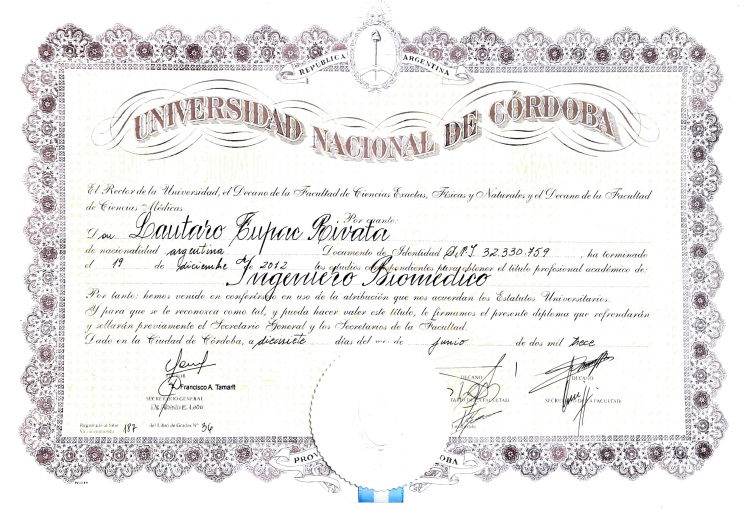 REPUBLICA ARGENTINA
UNIVERSIDAD NACIONAL DE CÓRDOBA
El Rector de la Universidad, el Decano de la Facultad de Ciencias Exactas, Físicas y Naturales y el Decano de la Facultad
de Ciencias Médicas
Por cuanto:
Don Lautaro Tupac Rivata
de nacionalidad argentina Documento de Identidad D.N.I 32.330.759, ha terminado
el 19 de diciembre de 2012 los estudios correspondientes para obtener el título profesional académico de:
Ingeniero Biomédico
Por tanto: hemos venido en conferírselo en uso de la atribución que nos acuerdan los Estatutos Universitarios.
Y para que se le reconozca como tal, y pueda hacer valer este título, le firmamos el presente diploma que refrendarán
y sellarán previamente el Secretario General y los Secretarios de la Facultad.
Dado en la Ciudad de Córdoba, a diecisiete días del mes de junio de dos mil trece
DECANO DECANO
Francisco A. Tamarit
SECRETARIO GENERAL SECRETARIO DE LA FACULTAD
187 del Libro de Grados Nº 36